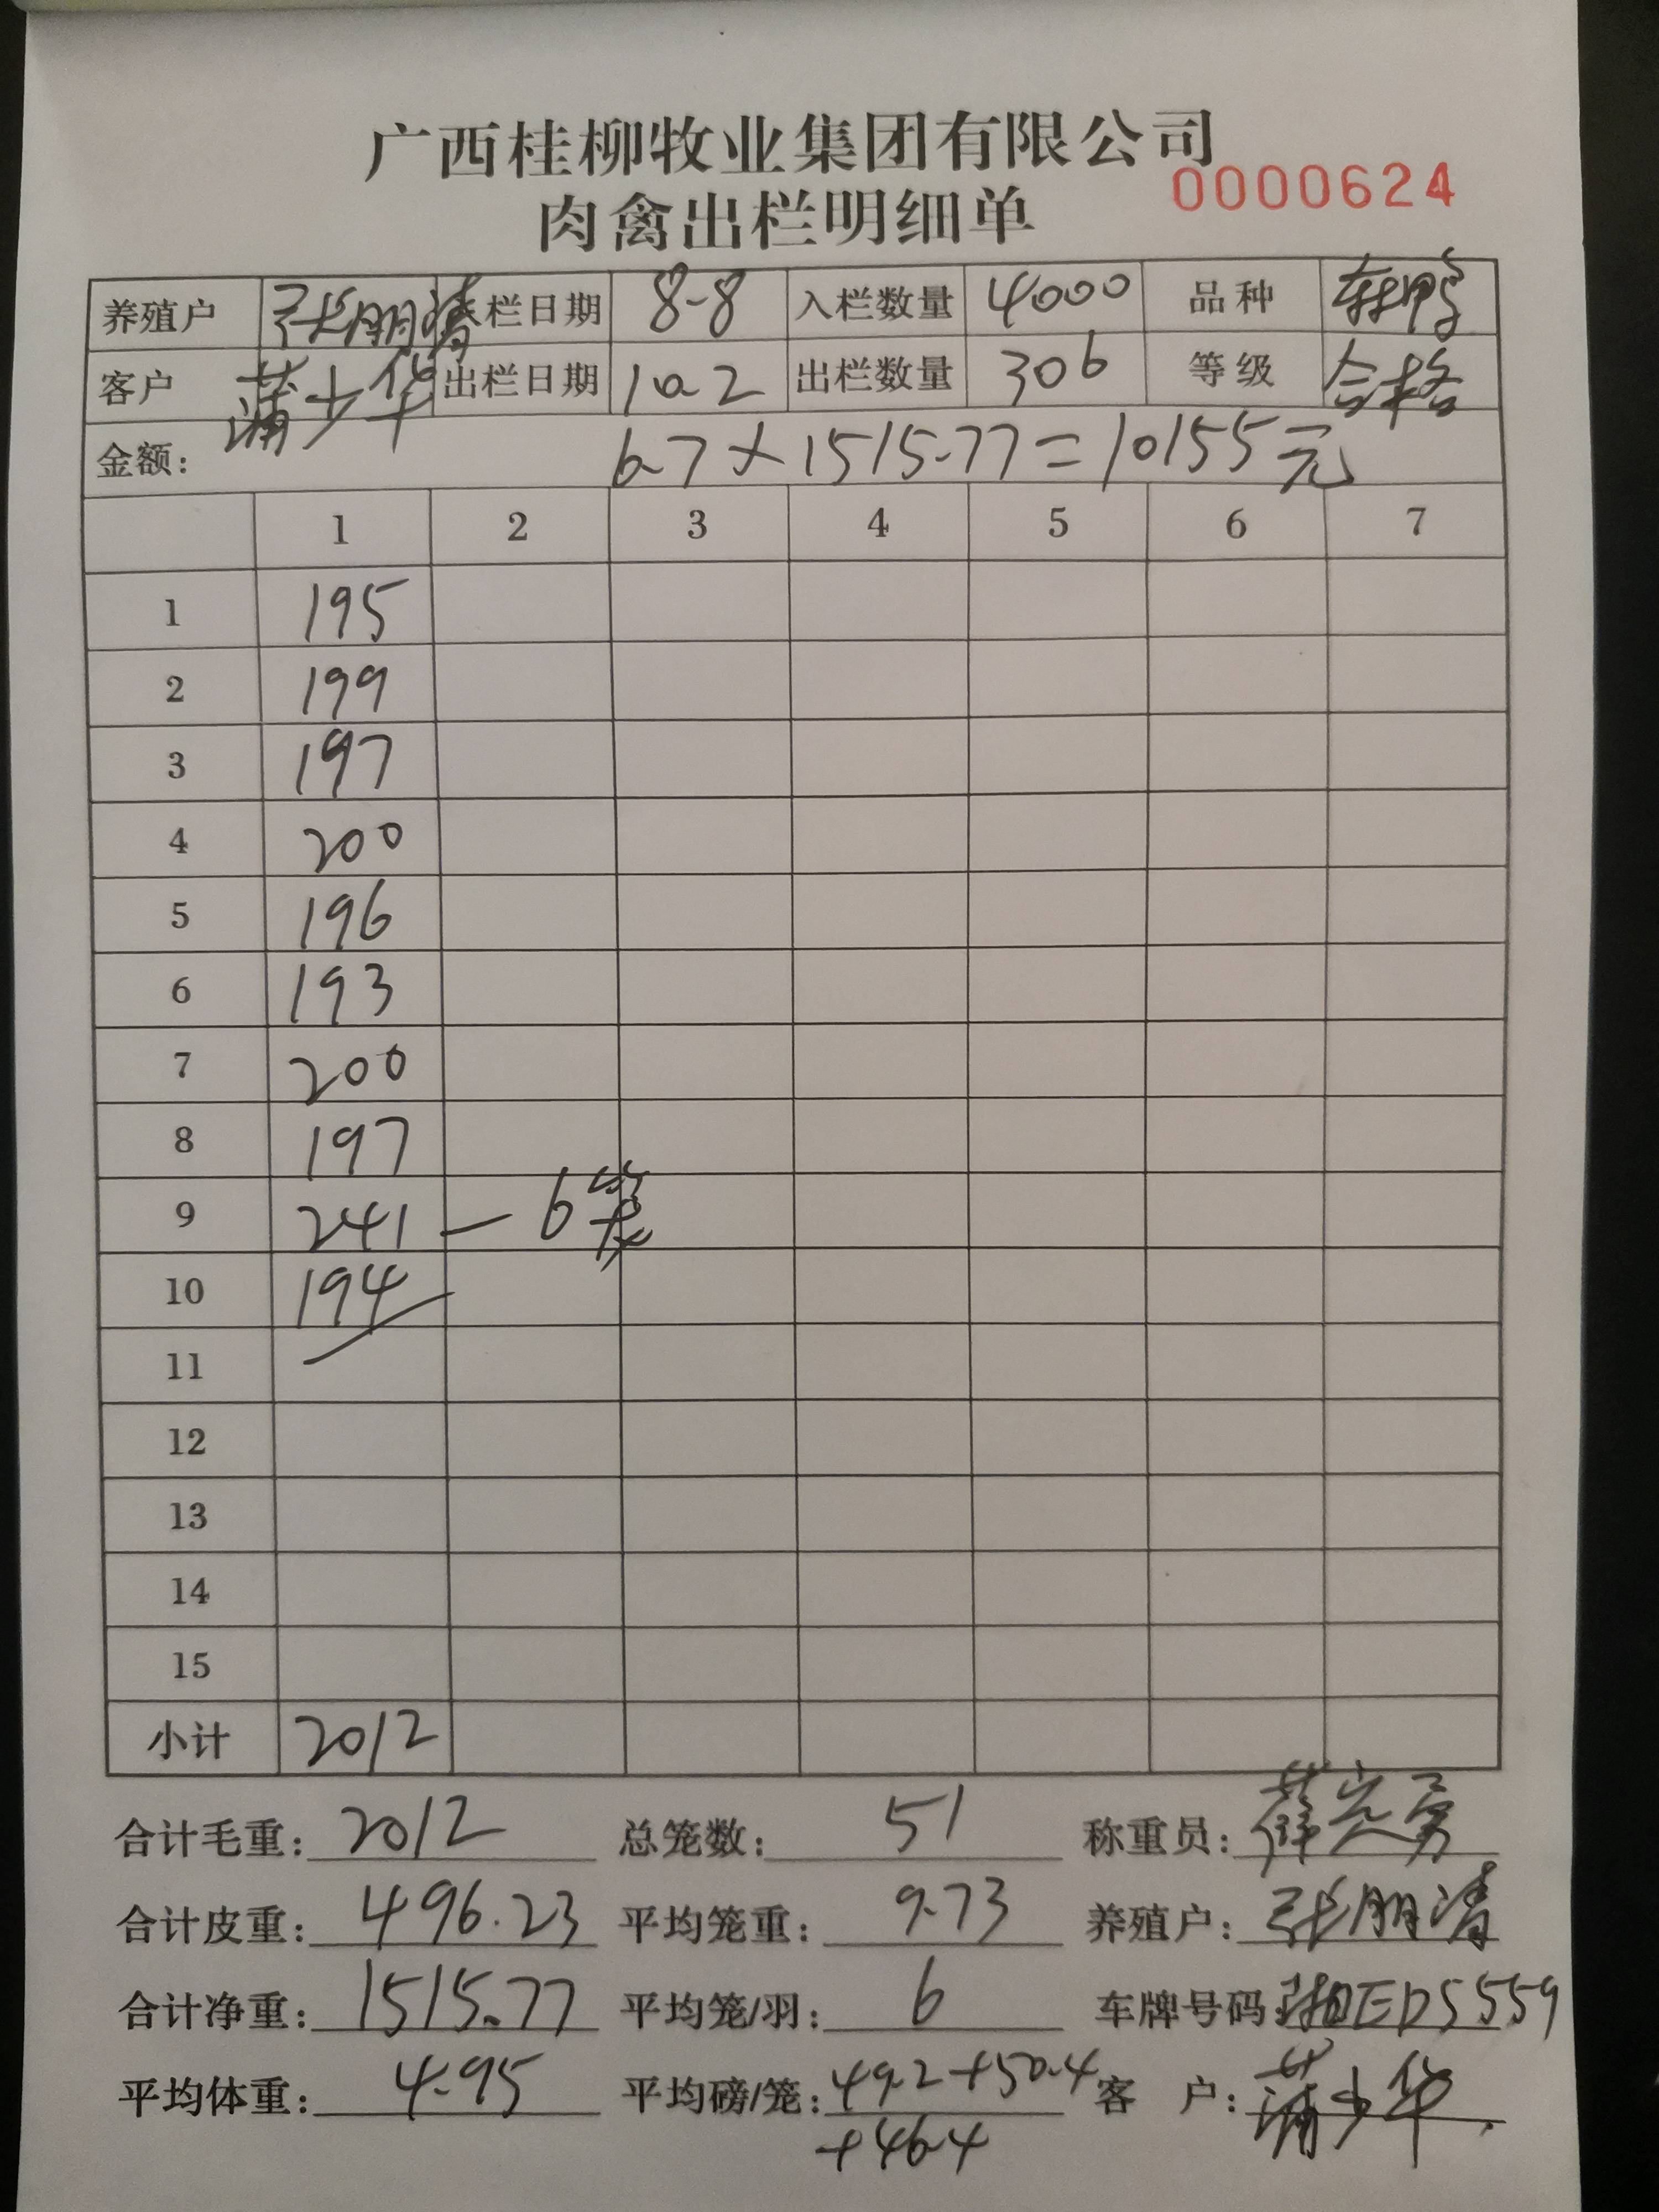 广西桂柳牧业集团有限公司
肉禽出栏明细单 0000624
养殖户 张朋清 栏日期 8-8 入栏数量 4000 品种 鸭
客户 蒲少华 出栏日期 10.2 出栏数量 306 等级 合格
金额: 6.7×1515.77=10155元
1 2 3 4 5 6 7
1 195
2 199
3 197
4 200
5 196
6 193
7 200
8 197
9 241 — 6笼
10 194
11
12
13
14
15
小计 2012
合计毛重: 2012 总笼数: 51 称重员: 薛
合计皮重: 496.23 平均笼重: 9.73 养殖户: 张朋清
合计净重: 1515.77 平均笼/羽: 6 车牌号码: 湘EDS559
平均体重: 4.95 平均磅/笼: 49.2+50.4 客 户: 蒲少华
+46.4